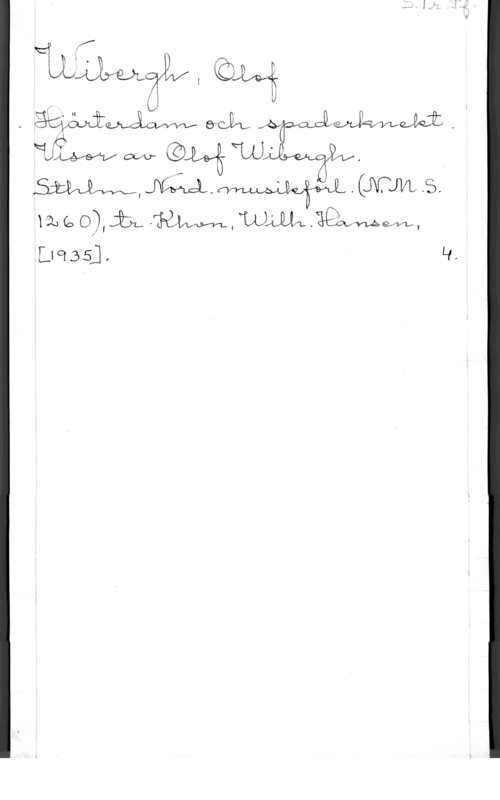 Wibergh, Olof
Hjärterdam och spaderknekt.
Visor av Olof Wibergh.
Sthlm, Nord. musikförl. (N.M.S.
1260), tr. Khvn, Wilh. Hansen,
[1935]. 4.